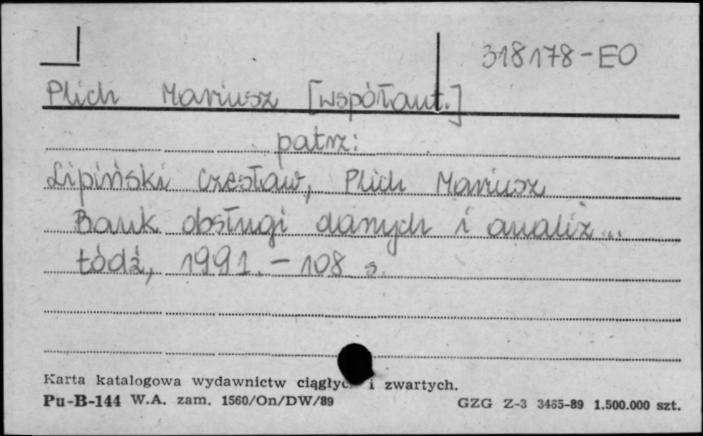 318178-EO
Plich Mariusz [współaut.]
patrz:
Lipiński Czesław, Plich Mariusz
Bank obsługi danych i analiz...
Łódź, 1991. - 108 s.
Karta katalogowa wydawnictw ciągłych i zwartych.
Pu-B-144 W.A. zam. 1560/On/DW/89 GZG Z-3 3465-89 1.500.000 szt.